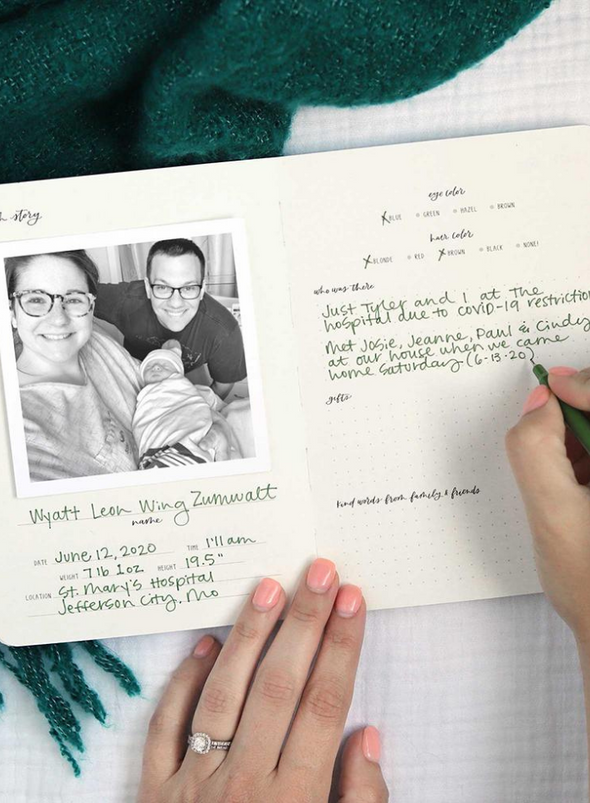 story
Wyatt Leon Wing Zumwalt
name
DATE June 12, 2020 TIME 1:11 am
WEIGHT 7 lb 1 oz HEIGHT 19.5"
LOCATION St. Mary's Hospital
Jefferson City, Mo
eye color
BLUE GREEN HAZEL BROWN
hair color
BLONDE RED BROWN BLACK NONE!
who was there
Just Tyler and I at the
hospital due to COVID-19 restriction
Met Josie, Jeanne, Paul & Cindy
at our house when we came
home Saturday (6-13-20)
gifts
kind words from family & friends